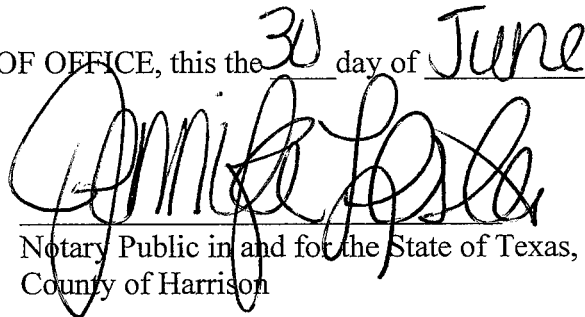 OF OFFICE, this the 30 day of June
Jennifer Lesle
Notary Public in and for the State of Texas,
County of Harrison